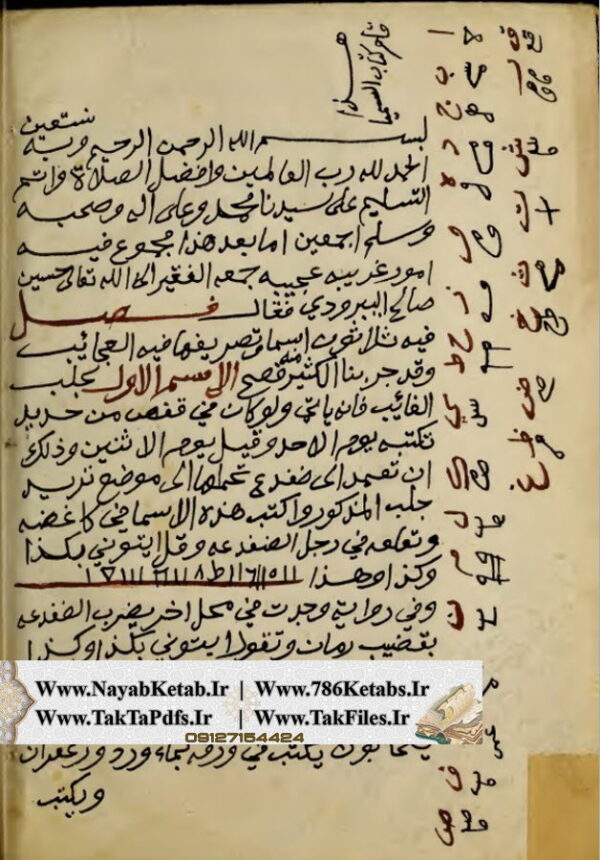 هذا
قلم كتاب السيميا
بسم الله الرحمن الرحيم وبه نستعين
الحمد لله رب العالمين وافضل الصلاة واتم
التسليم على سيدنا محمد وعلى اله وصحبه
وسلم اجمعين اما بعد هذا مجموع فيه
امور غريبه عجيبه جمعه الفقير الى الله تعالى حسين
صالح البيرودي فقال فصل
فيه ثلاثون اسما وتصريفها فيه العجائب
وقد جربنا الكثير منه فصح الاسم الاول يجلب
الغائب فانه ياتي ولو كان في قفص من حديد
تكتبه يوم الاحد وقيل يوم الاثنين وذلك
ان تعمد الى ضفدع تحملها الى موضع تريد
جلب المذكور واكتب هذه الاسما في كاغضه
وتعلقه في رجل الضفدعه وقل ايتوني بكذا
وكذا وهذا
وفي رواية وجدت في محل اخر يضرب الضفدعه
بقضيب رمان وتقول ايتوني بكذا وكذا
Www.NayabKetab.Ir | Www.786Ketabs.Ir
Www.TakTaPdfs.Ir | Www.TakFiles.Ir
09127154424
يكتب في ورقه بماء ورد وزعفران
ويكتب
ا
ب
ج
د
ه
و
ز
ح
ط
ي
ك
ل
م
ن
س
ع
ف
ص
ق
ر
ش
ت
ث
خ
ذ
ض
ظ
غ